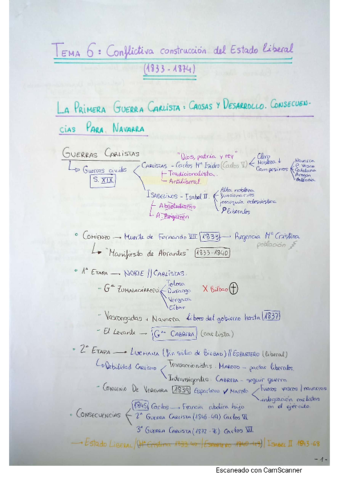 TEMA 6: Conflictiva construcción del Estado liberal
(1833-1874)
LA PRIMERA GUERRA CARLISTA: CAUSAS Y DESARROLLO. CONSECUEN-
CIAS PARA NAVARRA
GUERRAS CARLISTAS
"Dios, patria y rey"
Guerras civiles
S. XIX
CARLISTAS - Carlos Mª Isidro (Carlos V)
Clero
Nobles
Campesinos
Tradicionalistas
Antiliberal
ISABELINOS - Isabel II
Alta nobleza
Funcionarios
Liberales
Absolutistas
* COMIENZO → Muerte de Fernando VII 1833 → Regencia Mª Cristina
"Manifiesto de Abrantes" 1833-1840
* 1ª ETAPA → NORTE // CARLISTAS
- Gral ZUMALACÁRREGUI
Tolosa
Durango
Vergara
Eibar
X Bilbao
- Vascongadas y Navarra libres del gobierno hasta 1837
- El Levante → Gral CABRERA (carlista)
* 2ª ETAPA → LUCHANA (fin sitio de Bilbao) // ESPARTERO (liberal)
Debilidad Carlismo
Transaccionistas: MAROTO - pactar liberales
Intransigentes: CABRERA - seguir guerra
- CONVENIO DE VERGARA 1839 Espartero y Maroto
integración militares
en el ejército
* CONSECUENCIAS
Carlos
2ª Guerra Carlista
Carlos VI
3ª Guerra Carlista
Carlos VII
Estado Liberal
Isabel II
- 1 -
Escaneado con CamScanner